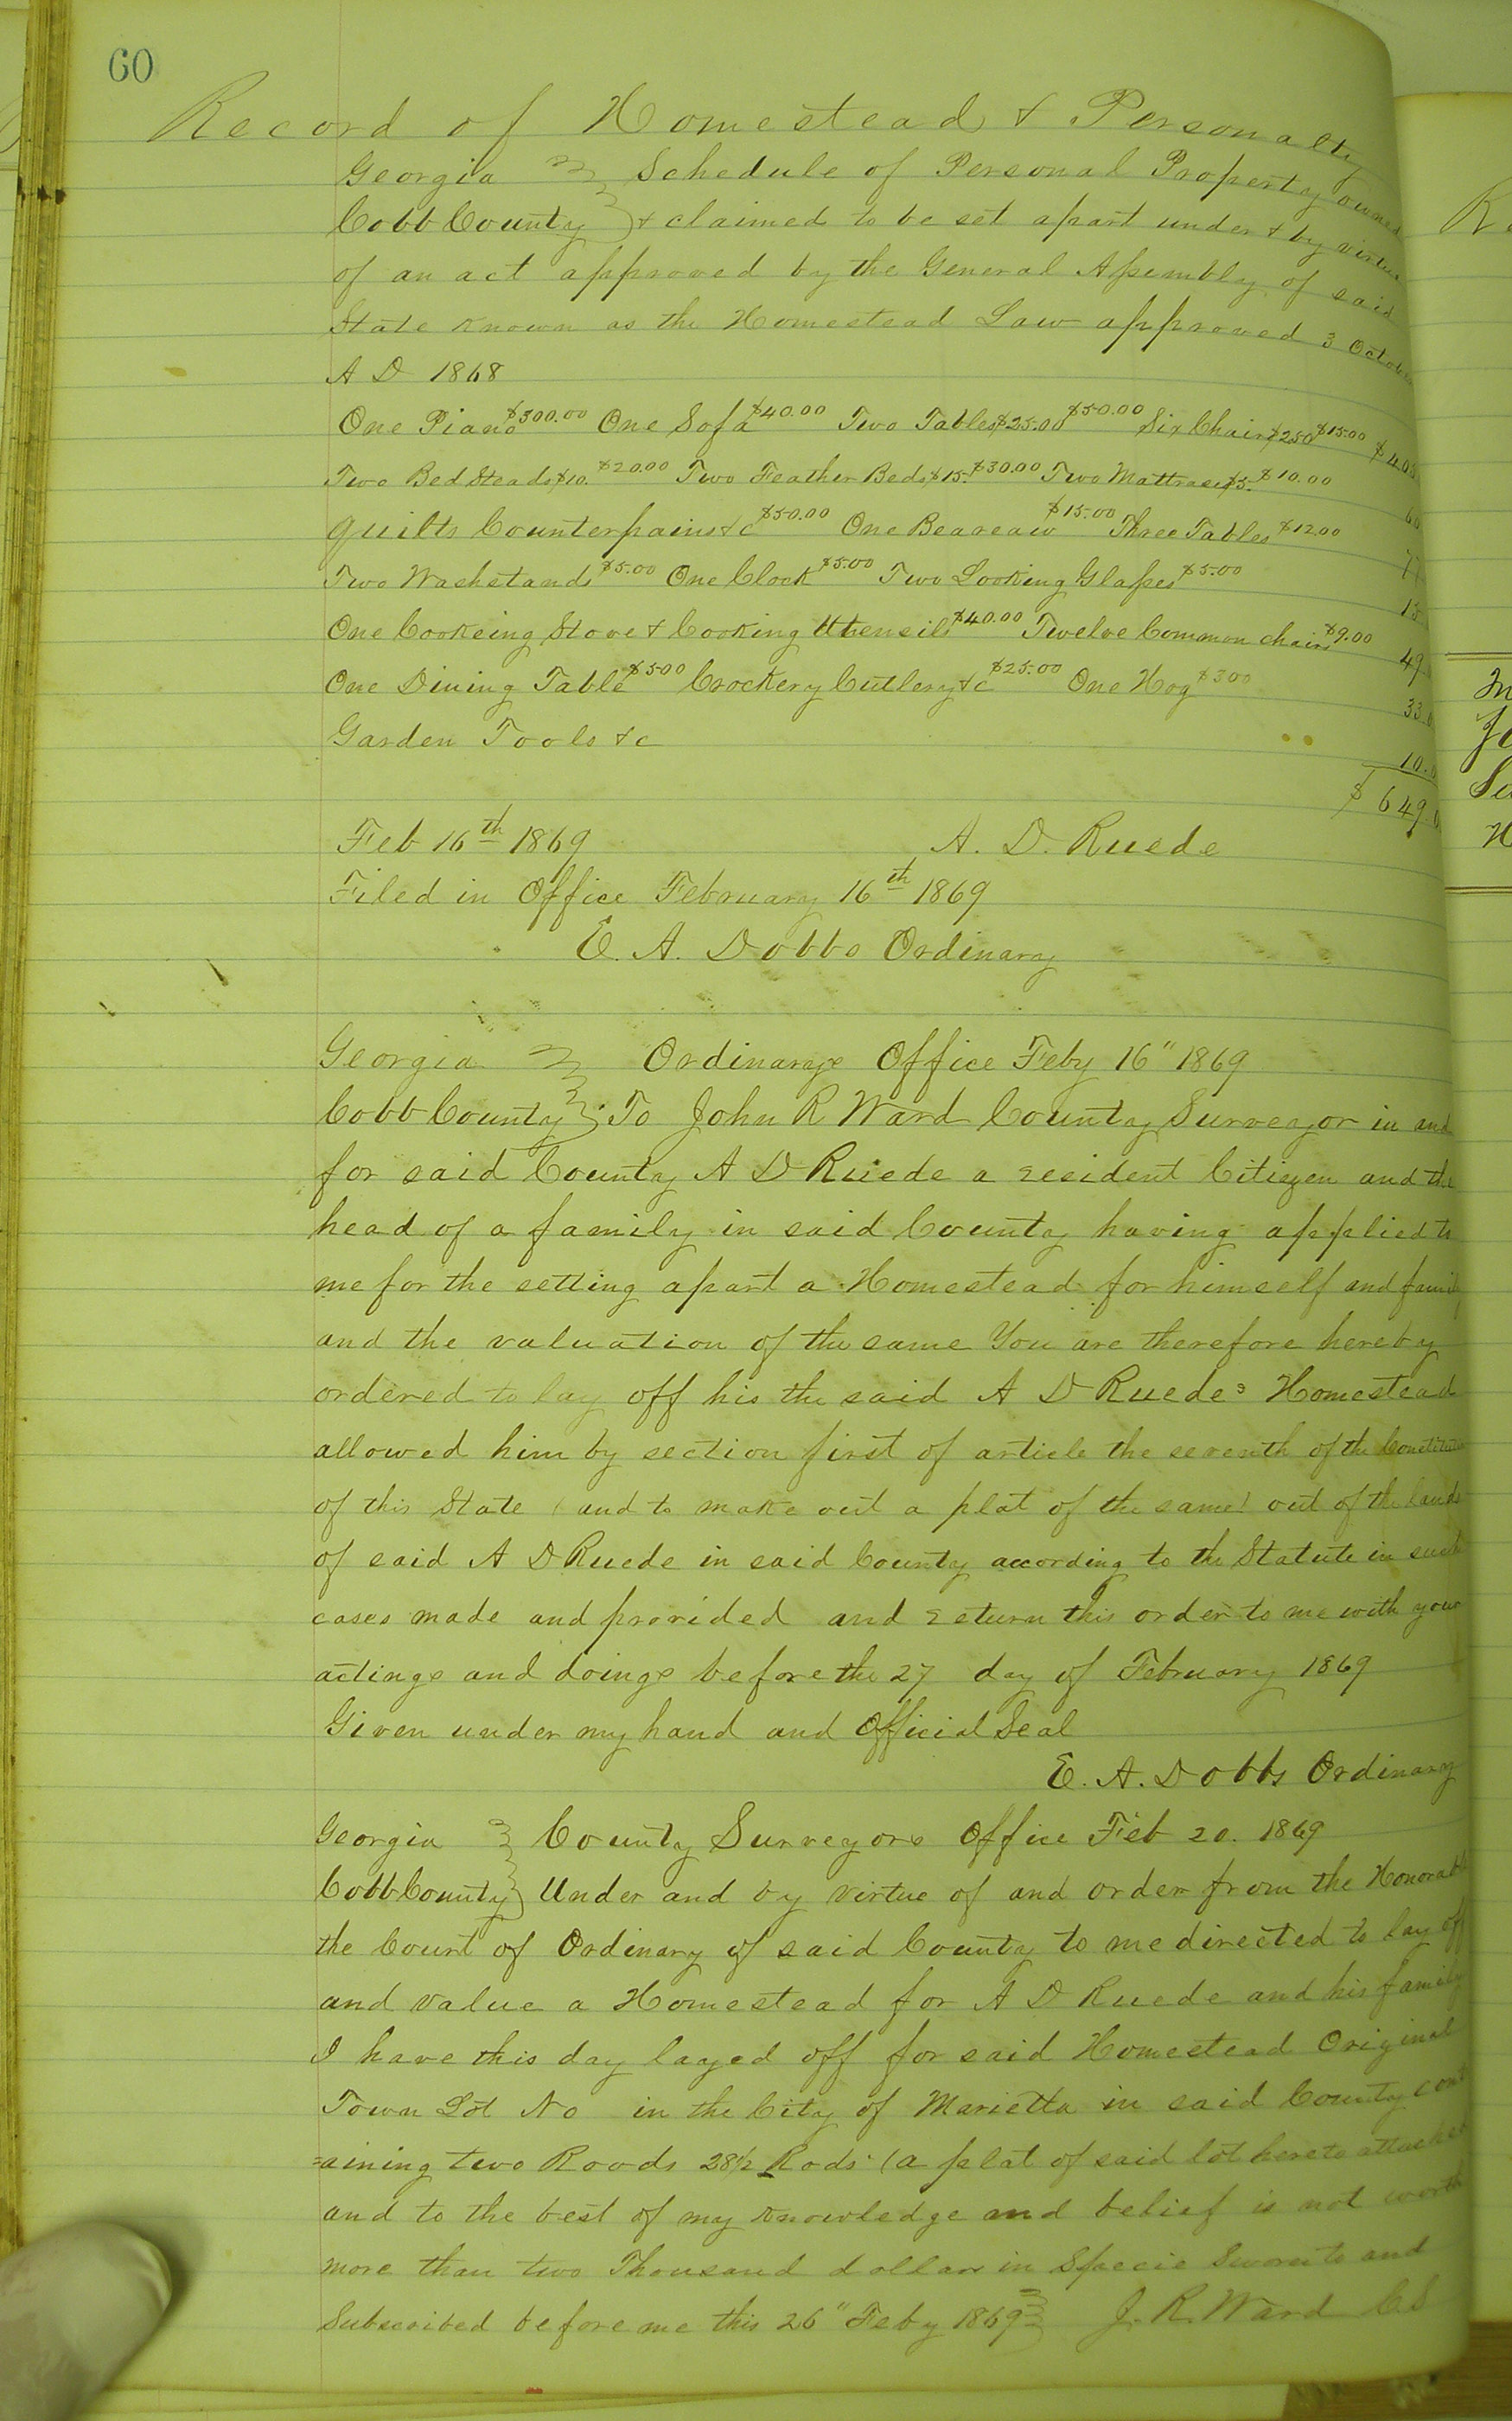 60
Record of Homestead & Personalty
Georgia } Schedule of Personal Property owned
Cobb County } & claimed to be set apart under & by virtue
of an act approved by the General Assembly of said
State known as the Homestead Law approved 3 October
A D 1868
One Piano $300.00 One Sofa $40.00 Two Tables $25.00 $50.00 Six Chairs $2.50 $15.00 $405
Two Bed Steads $10. $20.00 Two Feather Beds $15. $30.00 Two Mattrases $5. $10.00 60
quilts Counterpains &c $50.00 One Beareaw $15.00 Three Tables $12.00 77
Two Washstands $5.00 One Clock $5.00 Two Looking Glasses $5.00 15
One Cookeing Stove & Cooking Utensils $40.00 Twelve Common chairs $9.00 49
One Dining Table $5.00 Crockery Cutlery &c $25.00 One Hog $3.00 33.0
Garden Tools &c 10.0
$649.0
Feb 16th 1869 A. D. Ruede
Filed in Office February 16th 1869
E. A. Dobbs Ordinary
Georgia } Ordinarys Office Feby 16" 1869
Cobb County } To John R Ward County Surveyor in and
for said County A D Ruede a resident Citizen and the
head of a family in said County having applied to
me for the setting apart a Homestead for himself and family
and the valuation of the same You are therefore hereby
ordered to lay off his the said A D Ruedes Homestead
allowed him by section first of article the seventh of the Constitution
of this State (and to make out a plat of the same) out of the lands
of said A D Ruede in said County according to the Statute in such
cases made and provided and return this order to me with your
actings and doings before the 27 day of February 1869
Given under my hand and Official Seal
E. A. Dobbs Ordinary
Georgia } County Surveyors Office Feb 20. 1869
Cobb County } Under and by virtue of and order from the Honorable
the Court of Ordinary of said County to me directed to lay off
and value a Homestead for A D Ruede and his family
I have this day layed off for said Homestead Original
Town Lot No in the City of Marietta in said County cont
=aining two Roods 28½ Rods (a plat of said lot hereto attached
and to the best of my knowledge and belief is not worth
more than two Thousand dollars in Specie Sworn to and
Subscribed before me this 26" Feby 1869 } J. R. Ward C S